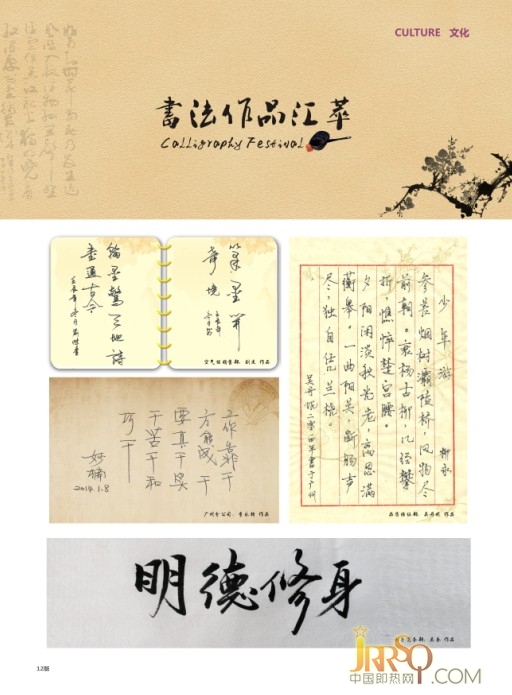 CULTURE 文化
書法作品汇萃
Calligraphy Festival
翰墨驚天地詩
古今
笔墨开
奇境
作品
少年游
柳永
参差烟树灞陵桥,风物尽
前朝。衰杨古柳,几经攀
折,憔悴楚宫腰。
夕阳闲淡秋光老,离思满
蘅皋。一曲阳关,断肠声
尽,独自凭兰桡。
工作靠干
方能成 干
要真干实
干苦干和
巧干
2014.1.8
广州分公司、 作品
作品
明德修身
作品
12版
JRRSQ.COM
中国即热网